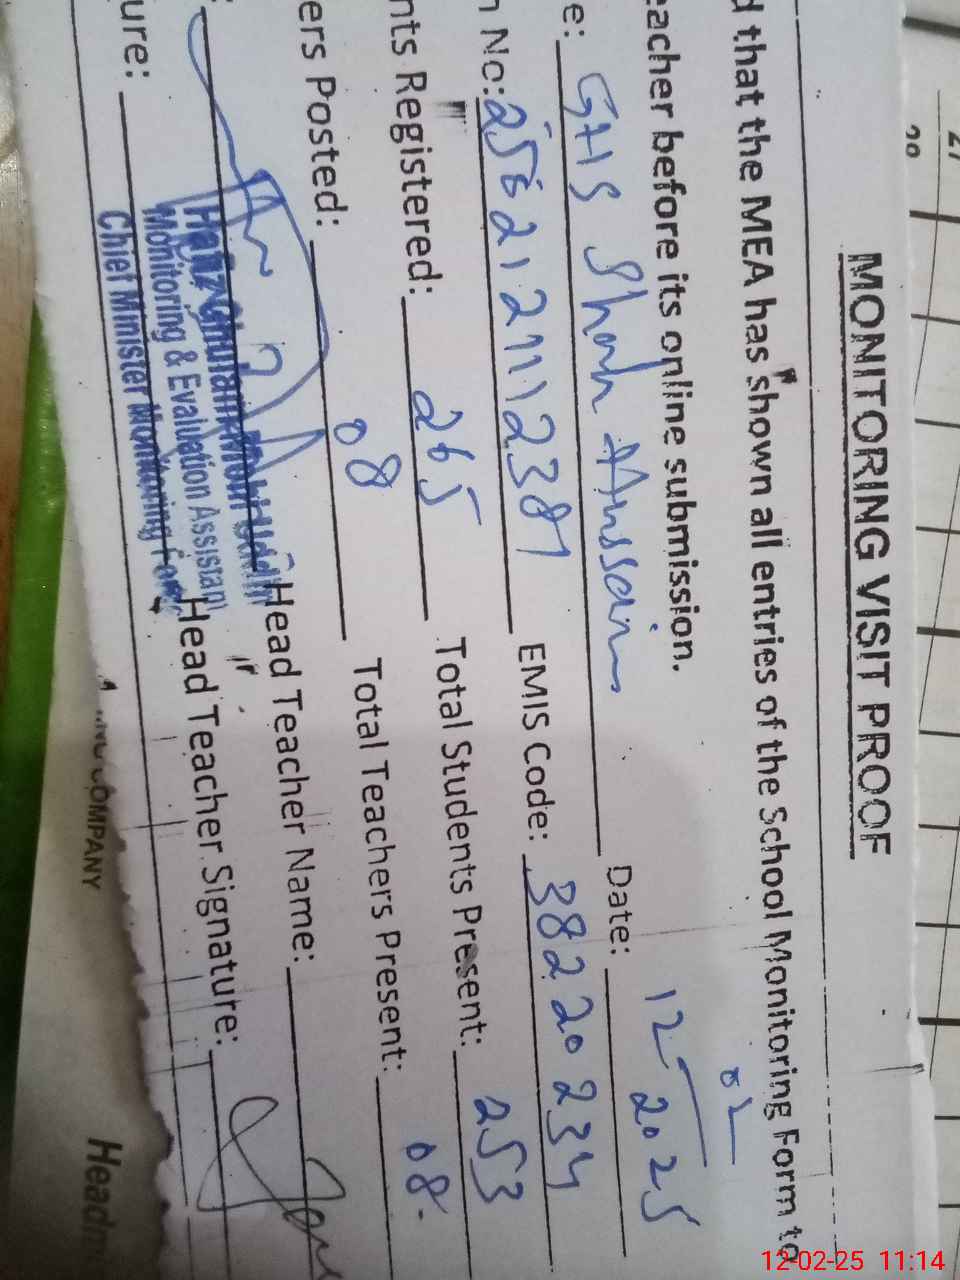 MONITORING VISIT PROOF
d that the MEA has shown all entries of the School Monitoring Form to
eacher before its online submission.
e: GHS Shah Hussain Date: 12-02-2025
n No: 2562121111238 EMIS Code: 38220234
nts Registered: 265 Total Students Present: 253
ers Posted: 08 Total Teachers Present: 08
Head Teacher Name:
ure: Head Teacher Signature:
Hafiz Ghulam Mohi Uddin
Monitoring & Evaluation Assistan
Chief Minister Monitoring Force
COMPANY
Headm
27
28
12-02-25 11:14